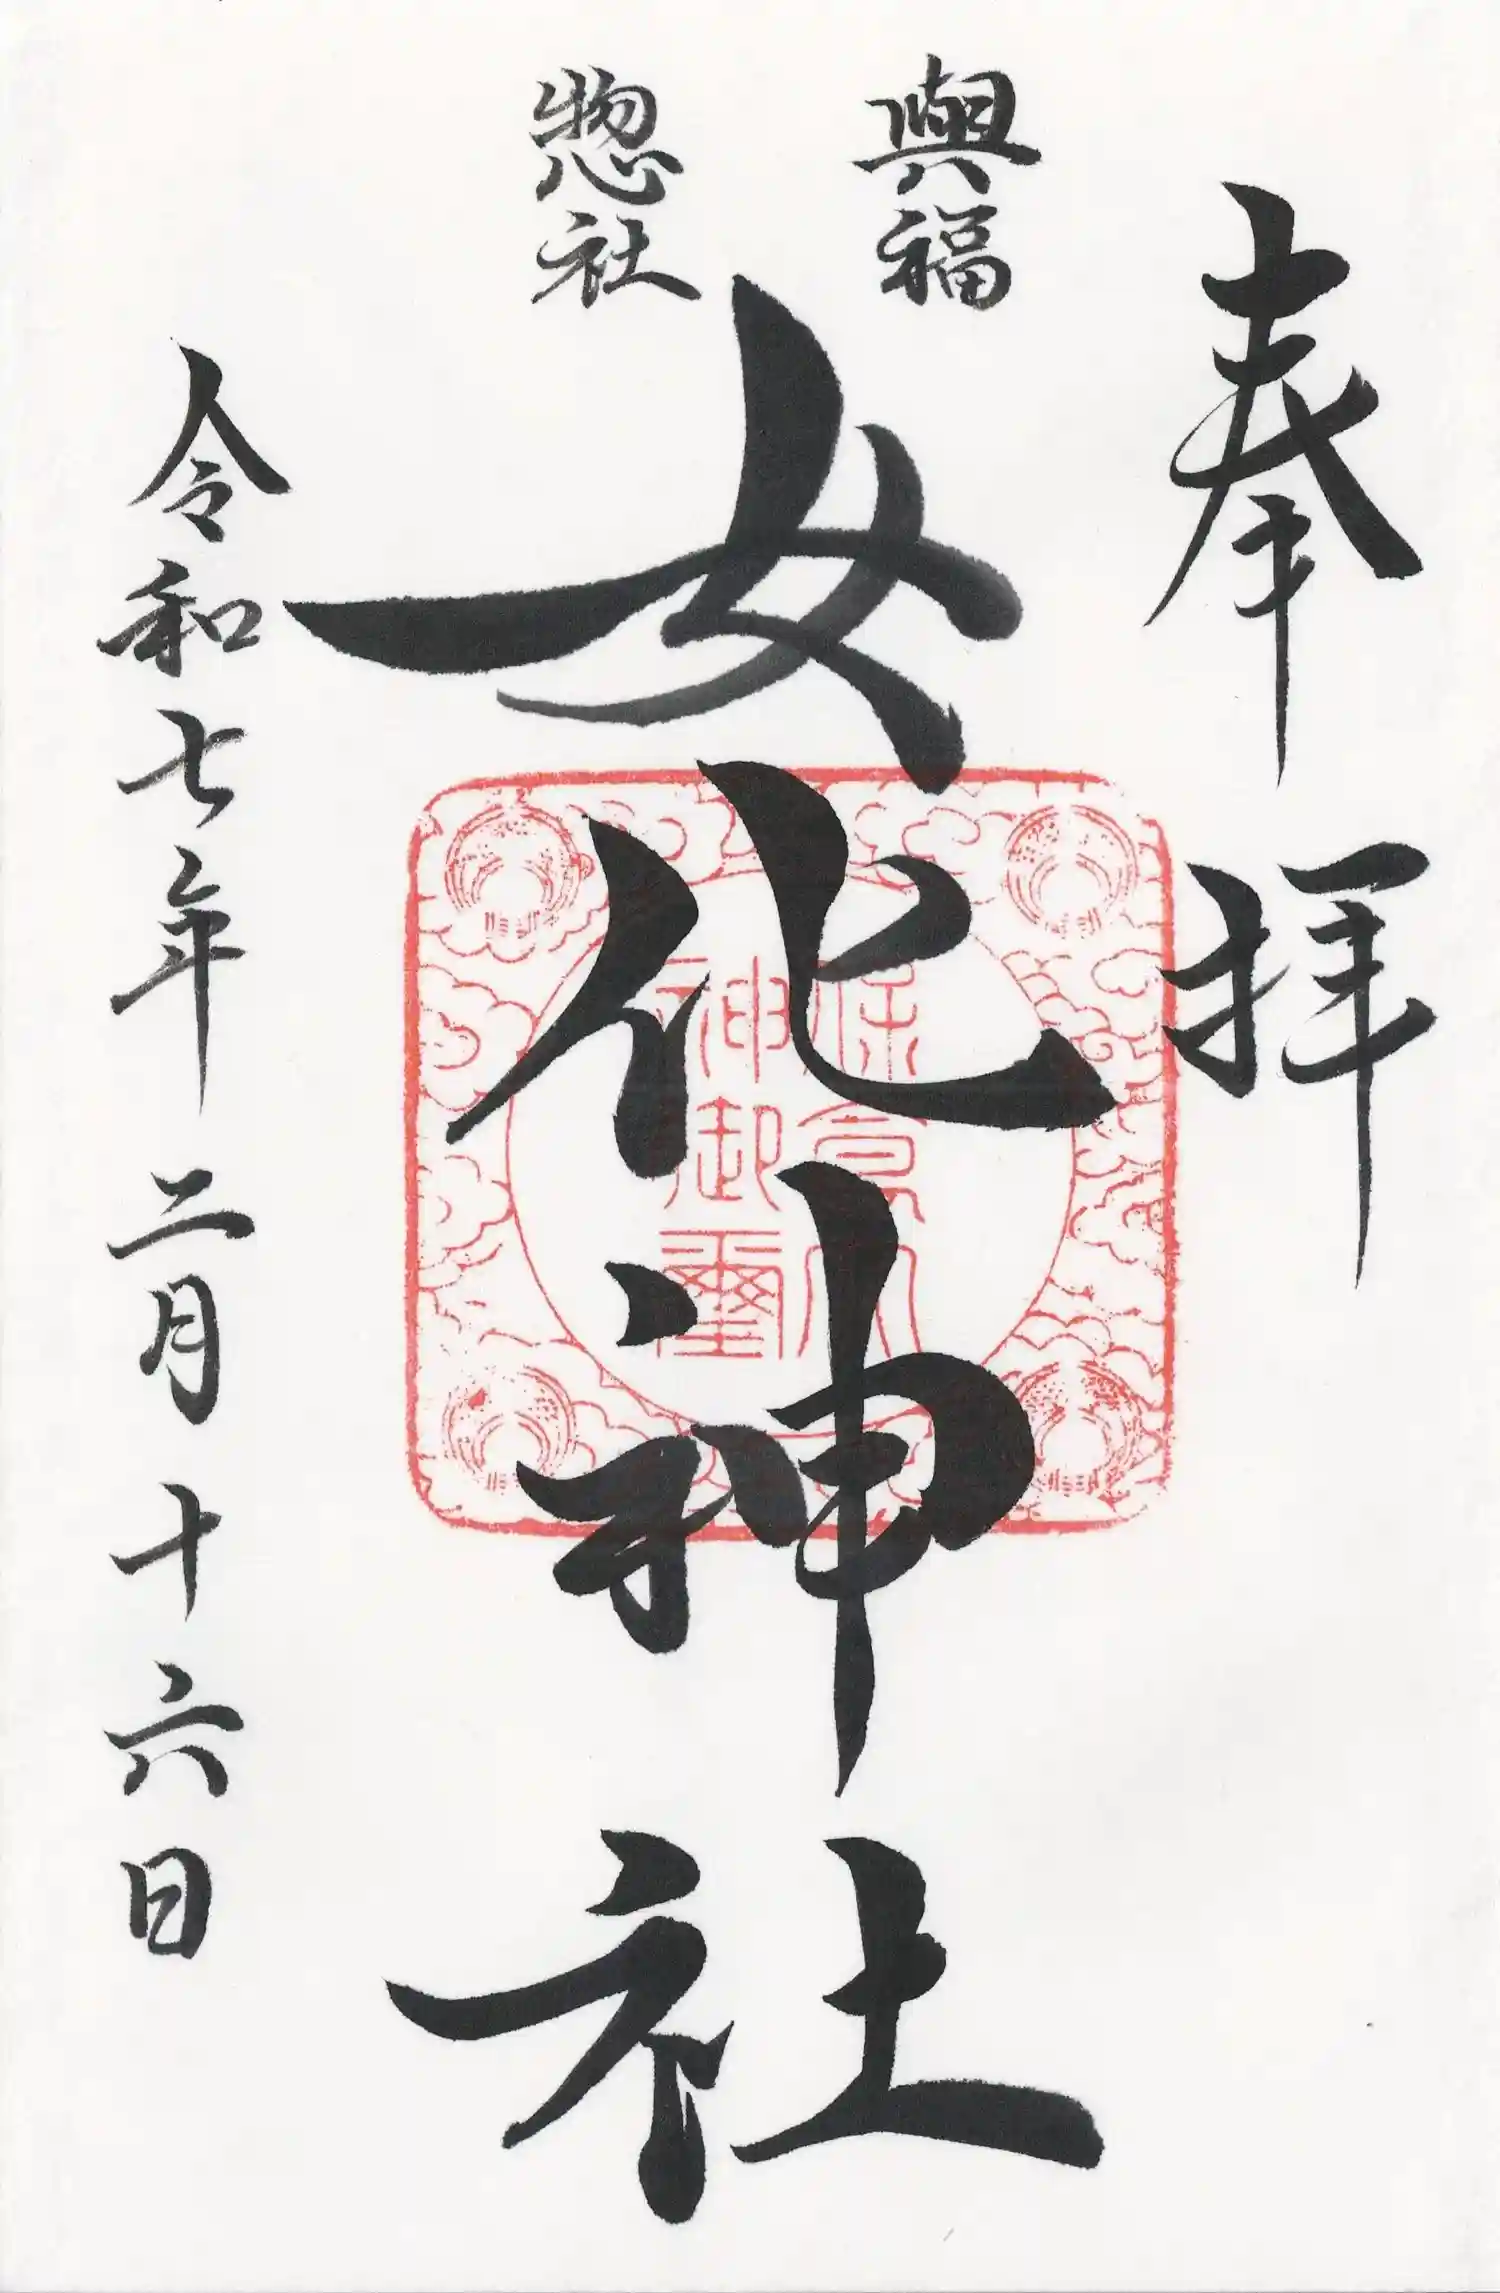 奉拝
興福
惣社
女化神社
保食大
神御璽
令和七年二月十六日